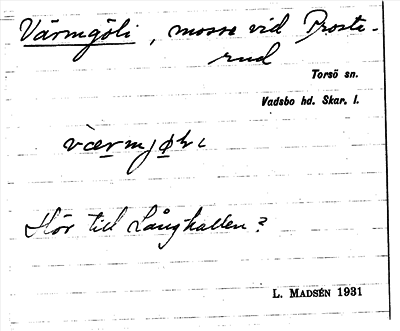 Värmgöli, mosse vid Proste-
rud
Torsö sn.
Vadsbo hd. Skar. l.
Hör till Långkallen?
L. MADSÉN 1931